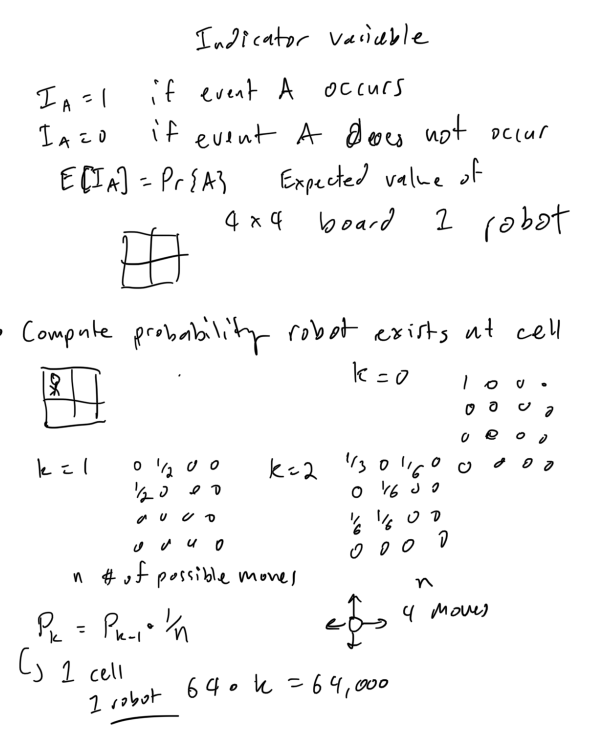 Indicator variable
I_A = 1 if event A occurs
I_A = 0 if event A does not occur
E[I_A] = Pr{A} Expected value of
4 x 4 board 1 robot
• Compute probability robot exists at cell
k = 0
1 0 0 0
0 0 0 0
0 0 0 0
0 0 0 0
k = 1
0 1/2 0 0
1/2 0 0 0
0 0 0 0
0 0 0 0
k = 2
1/3 0 1/6 0
0 1/6 0 0
1/6 1/6 0 0
0 0 0 0
n # of possible moves
n
4 moves
P_k = P_{k-1} • 1/n
1 cell
1 robot 64 • k = 64,000